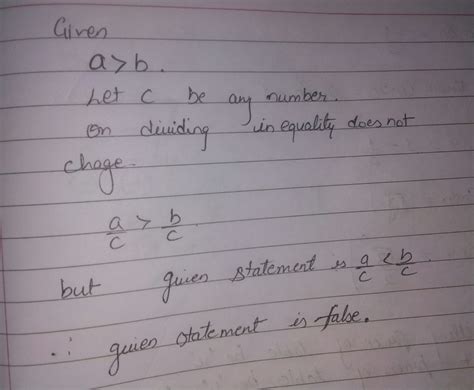 Given
a>b.
Let C be any number.
on dividing inequality does not
chage.
a/c > b/c.
but given statement is a/c < b/c.
∴ given statement is false.